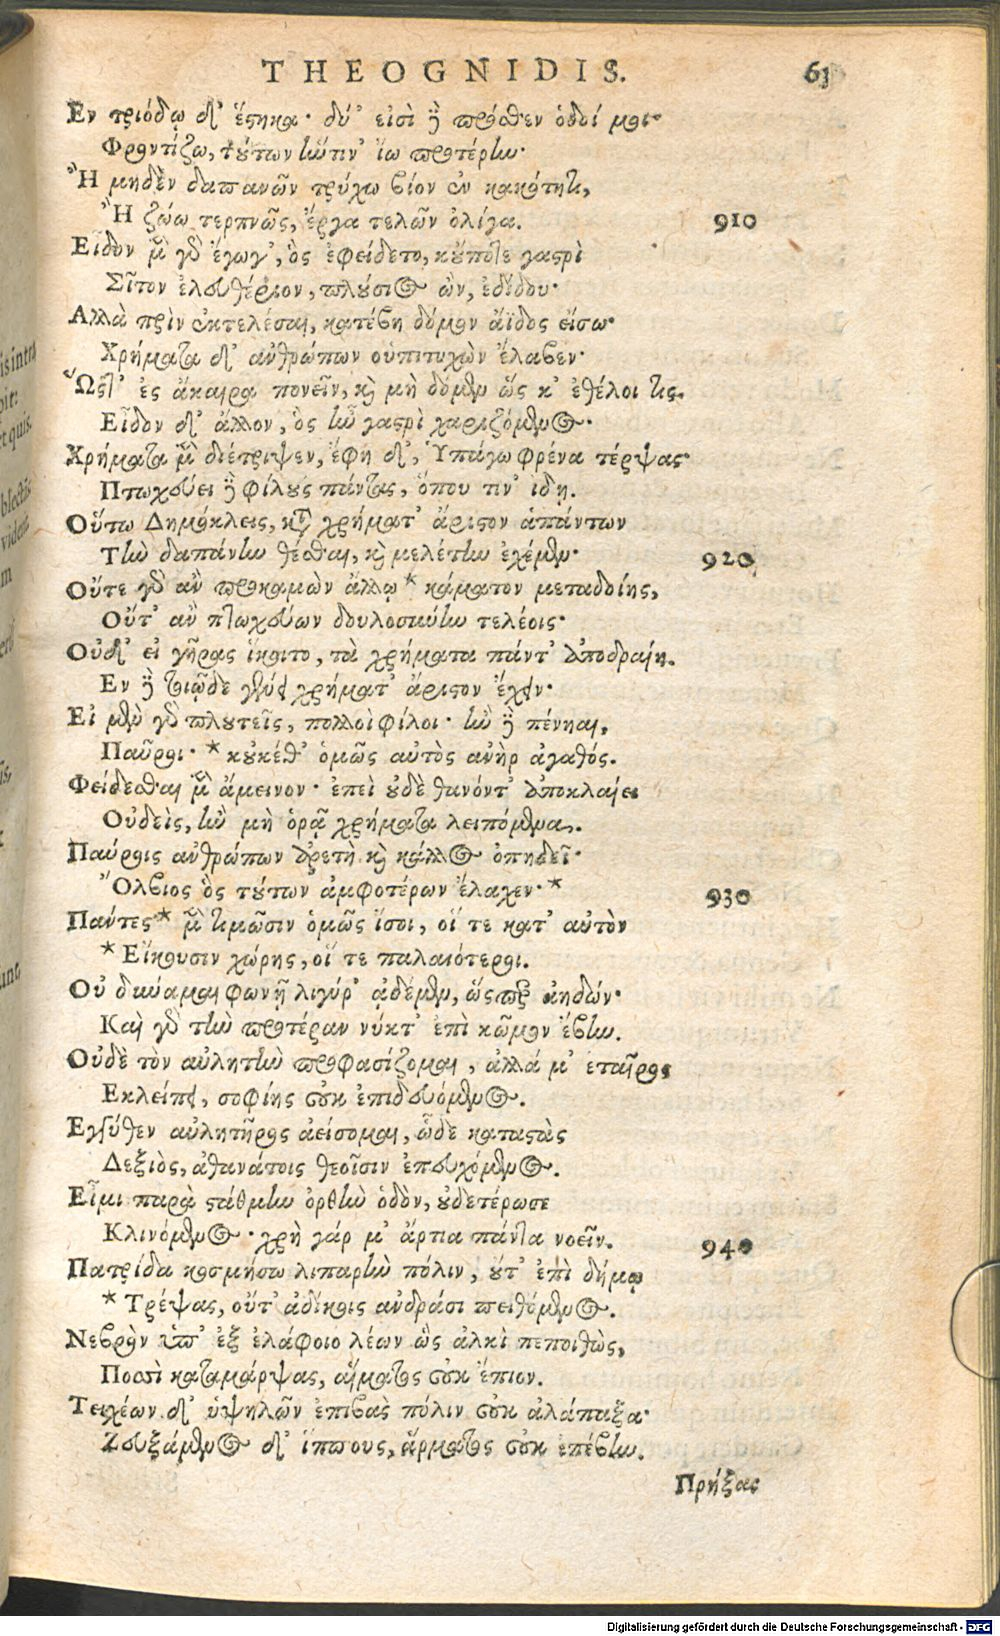 THEOGNIDIS. 61
Εν τριόδῳ δ' ἕστηκα· δύ' εἰσὶ δὲ πρόσθεν ὁδοί μοι·
Φροντίζω, τούτων ἥντιν' ἴω προτέρην·
Ἢ μηδὲν δαπανῶν τρύχω βίον ἐν κακότητι,
Ἢ ζώω τερπνῶς, ἔργα τελῶν ὀλίγα. 910
Εἶδον μὲν γὰρ ἔγωγ', ὃς ἐφείδετο, κοὔποτε γαστρὶ
Σῖτον ἐλευθέριον, πλούσιος ὢν, ἐδίδου·
Αλλὰ πρὶν ἐκτελέσαι, κατέβη δόμον ἄϊδος εἴσω·
Χρήματα δ' ἀνθρώπων οὑπιτυχὼν ἔλαβεν·
Ὥστ' ἐς ἄκαιρα πονεῖν, καὶ μὴ δόμεν ὥς κ' ἐθέλοι τις.
Εἶδον δ' ἄλλον, ὃς ἣν γαστρὶ χαριζόμενος.
Χρήματα μὲν διέτριψεν, ἔφη δ', Ὑπάγω φρένα τέρψας·
Πτωχεύει δὲ φίλους πάντας, ὅπου τιν' ιδῃ.
Οὕτω Δημόκλεις, κατὰ χρήματ' ἄριστον ἁπάντων
Τὴν δαπάνην θέσθαι, καὶ μελέτην ἐχέμεν· 920
Οὔτε γὰρ ἂν προκαμὼν ἄλλῳ * κάματον μεταδοίης,
Οὔτ' ἂν πτωχεύων δουλοσύνην τελέοις·
Οὐδ' εἰ γῆρας ἵκοιτο, τὰ χρήματα πάντ' ἀποδραίη.
Εν δὲ τοιῷδε γένει χρήματ' ἄριστον ἔχειν·
Εἰ μὲν γὰρ πλουτεῖς, πολλοὶ φίλοι· ἢν δὲ πένηαι,
Παῦροι· * κοὐκέθ' ὁμῶς αὐτὸς ἀνὴρ ἀγαθός.
Φείδεσθαι μὲν ἄμεινον· ἐπεὶ οὐδὲ θανόντ' ἀποκλαίει
Οὐδεὶς, ἢν μὴ ὁρᾷ χρήματα λειπόμενα.
Παύροις ἀνθρώπων ἀρετὴ καὶ κάλλος ὀπηδεῖ·
Ὄλβιος ὃς τούτων ἀμφοτέρων ἔλαχεν· * 930
Πάντες * μὲν τιμῶσιν ὁμῶς ἴσοι, οἵ τε κατ' αὐτὸν
* Εἴκουσιν χώρης, οἵ τε παλαιότεροι.
Οὐ δύναμαι φωνῇ λιγύρ' ἀδέμεν, ὥσπερ ἀηδών·
Καὶ γὰρ τὴν προτέραν νύκτ' ἐπὶ κῶμον ἔβην.
Οὐδὲ τὸν αὐλητὴν προφασίζομαι, ἀλλά μ' ἑταῖρος
Εκλείπει, σοφίης οὐκ ἐπιδευόμενος.
Εγγύθεν αὐλητῆρος ἀείσομαι, ὧδε καταστὰς
Δεξιὸς, ἀθανάτοις θεοῖσιν ἐπευχόμενος.
Εἶμι παρὰ στάθμην ὀρθὴν ὁδὸν, οὐδετέρωσε
Κλινόμενος· χρὴ γάρ μ' ἄρτια πάντα νοεῖν. 940
Πατρίδα κοσμήσω λιπαρὴν πόλιν, οὔτ' ἐπὶ δήμῳ
* Τρέψας, οὔτ' ἀδίκοις ἀνδράσι πειθόμενος.
Νεβρὸν ὑπ' ἐξ ἐλάφοιο λέων ὣς ἀλκὶ πεποιθὼς,
Ποσσὶ καταμάρψας, αἵματος οὐκ ἔπιον.
Τειχέων δ' ὑψηλῶν ἐπιβὰς πόλιν οὐκ ἀλάπαξα·
Ζευξάμενος δ' ἵππους, ἅρματος οὐκ ἐπέβην.
Πρήξας
Digitalisierung gefördert durch die Deutsche Forschungsgemeinschaft - DFG